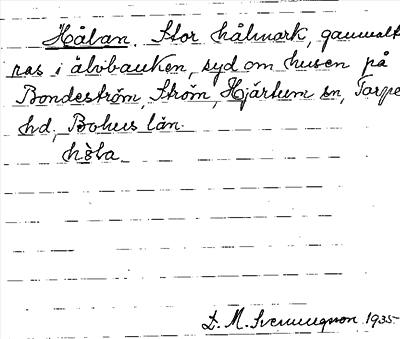 Hålan. Stor hålmark, gammalt
ras i älvbanken, syd om husen på
Bondeström, Ström, Hjärtum sn, Torpe
hd, Bohus län.
hòla
D. M. Svenungsson 1935.